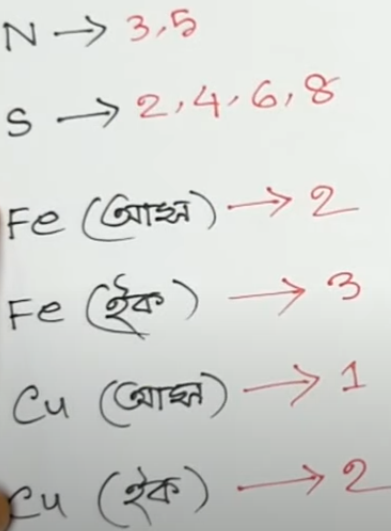 N → 3,5
S → 2,4,6,8
Fe (আস) → 2
Fe (ইক) → 3
Cu (আস) → 1
Cu (ইক) → 2